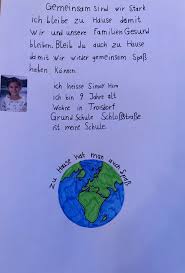 Gemeinsam sind wir Stark
ich bleibe zu Hause damit
Wir und unsere Familien Gesund
bleiben. Bleib du auch zu Hause
damit wir wieder gemeinsam Spaß
haben können.
ich heisse Simar
ich bin 9 Jahre alt
Wohne in Troisdorf
Grundschule Schloßstraße
ist meine Schule.
zu Hause hat man auch Spaß